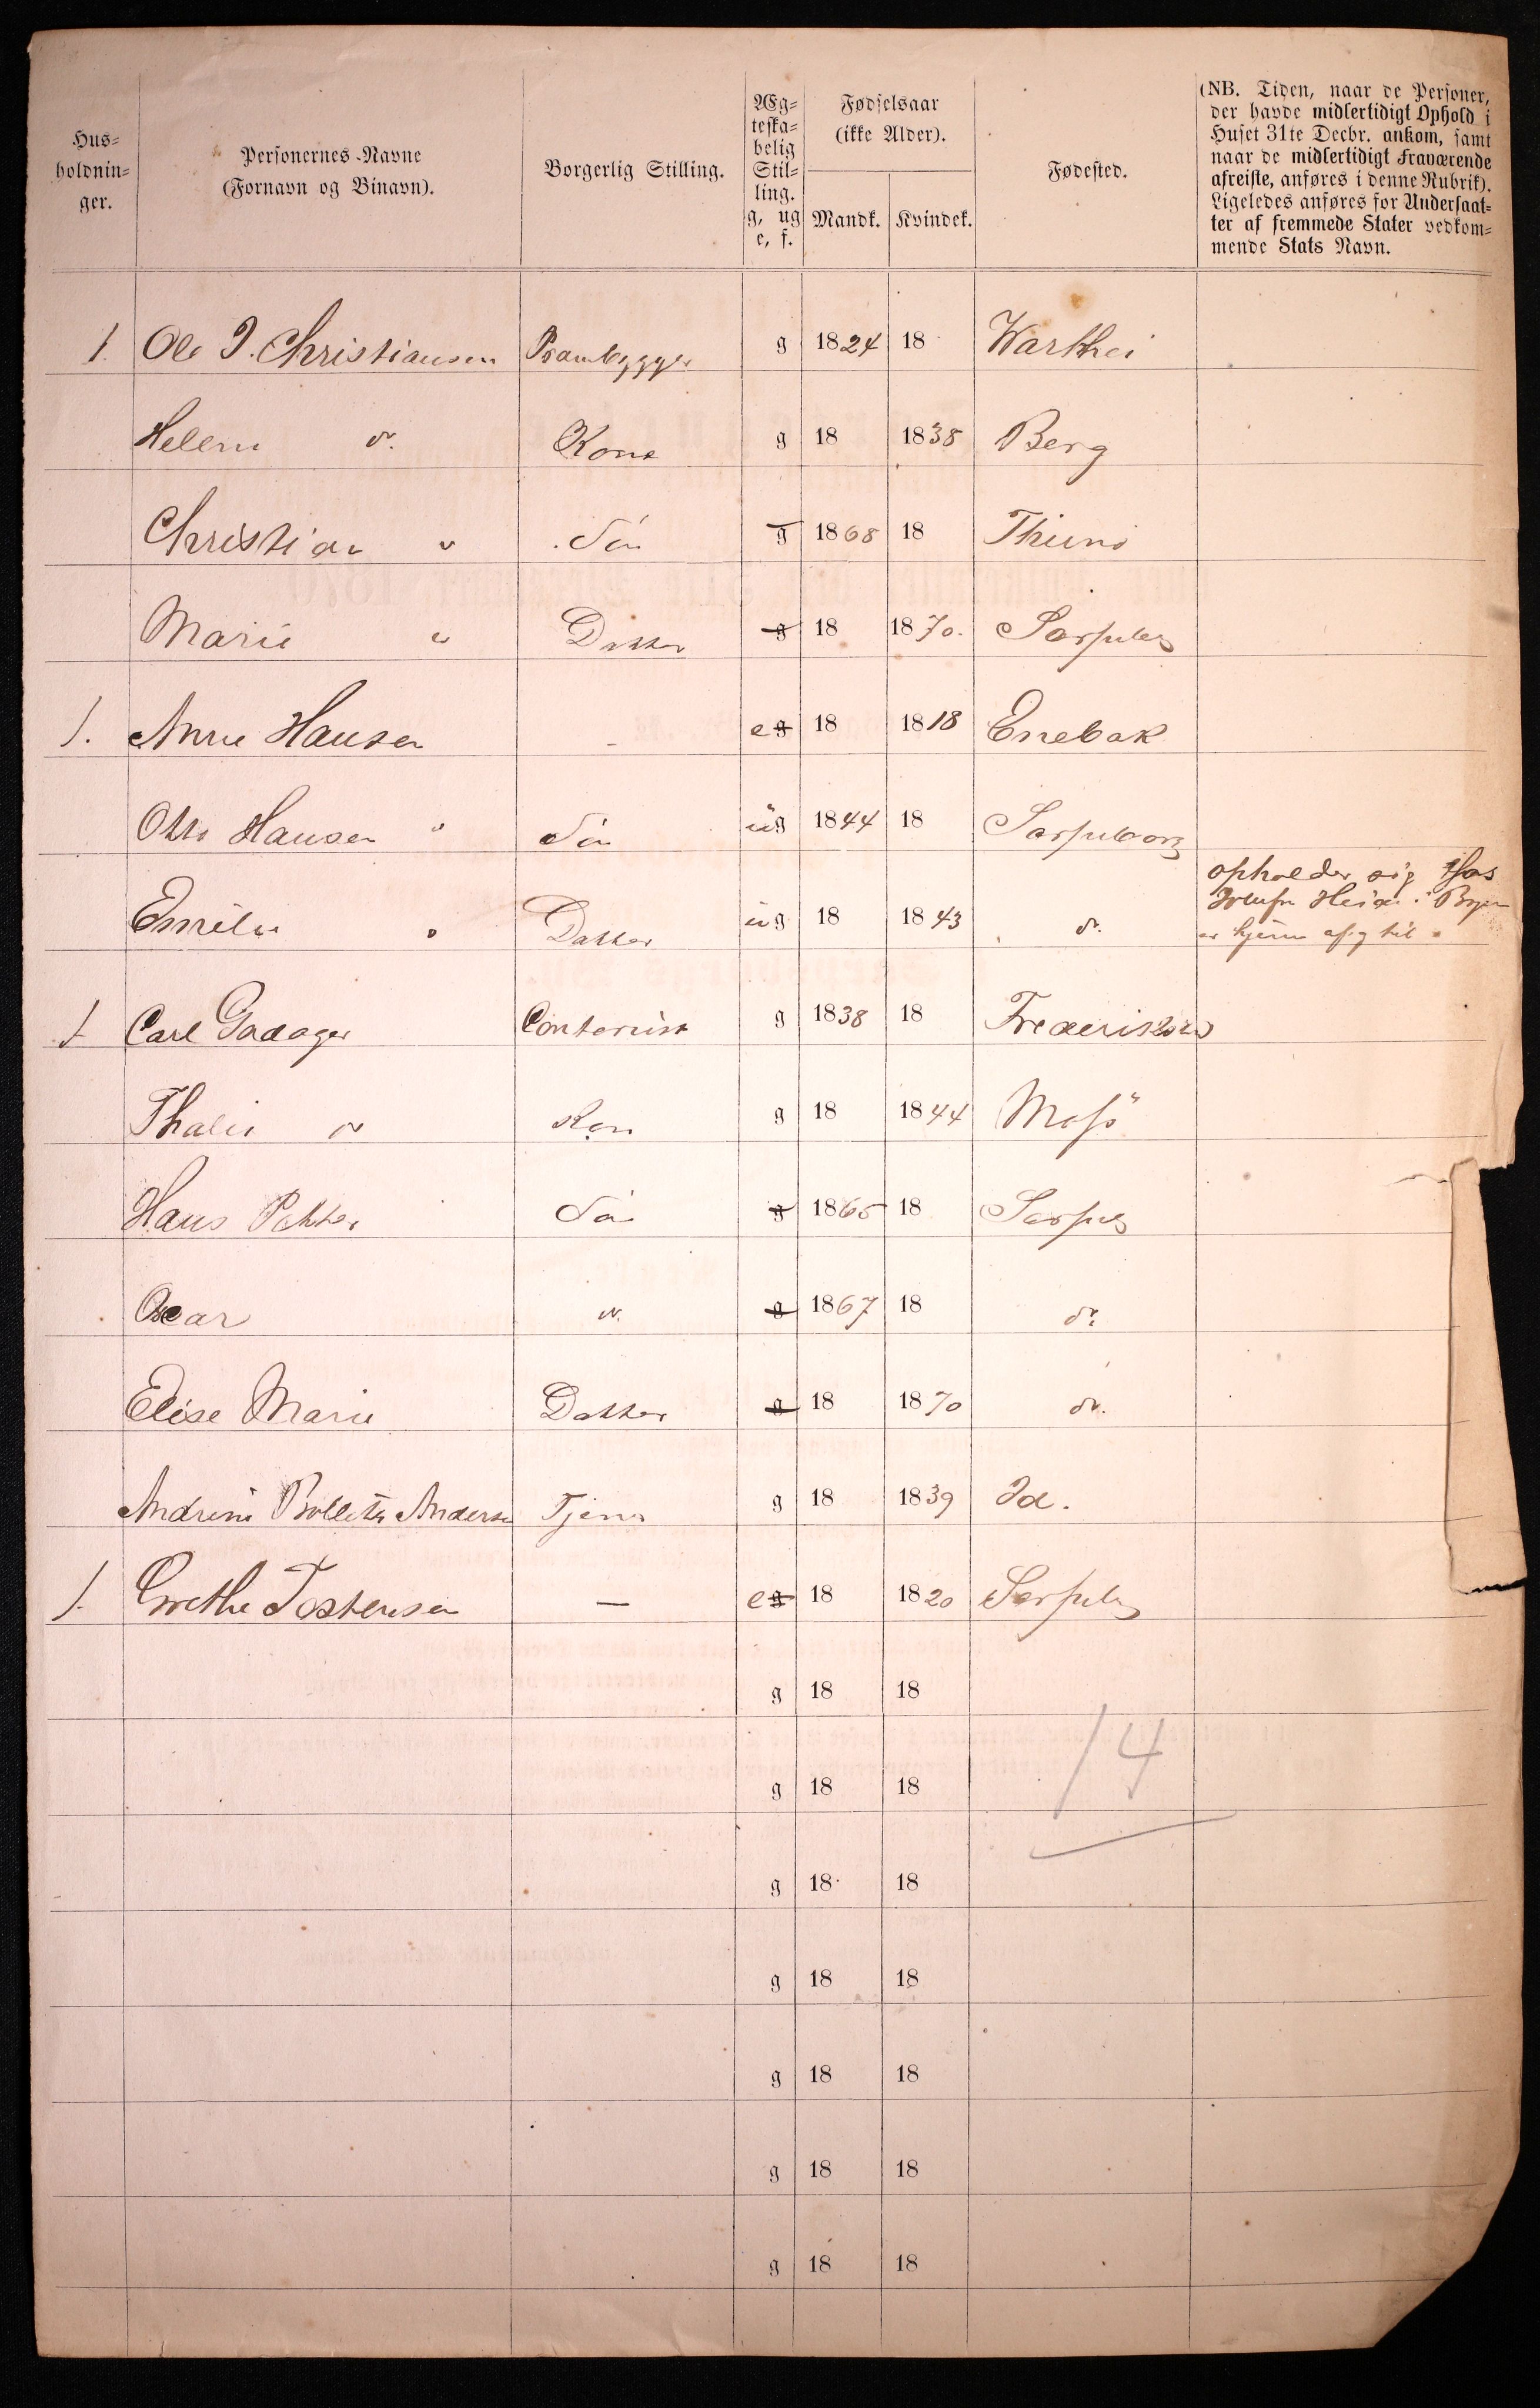 Hus-
holdnin-
ger.
Personernes Navne
(Fornavn og Binavn).
Borgerlig Stilling.
Æg-
teska-
belig
Stil-
ling.
g, ug
e, f.
Fødselsaar
(ikke Alder).
Mandk. Kvindek.
Fødested.
(NB. Tiden, naar de Personer,
der havde midlertidigt Ophold i
Huset 31te Decbr. ankom, samt
naar de midlertidigt Fraværende
afreiste, anføres i denne Rubrik).
Ligeledes anføres for Undersaat-
ter af fremmede Stater vedkom-
mende Stats Navn.
1. Ole J. Christiansen Prambygger g 1824 18
Helene do. Kone g 18 1838 Berg
Christian " Søn g 1868 18 Thunø
Marie " Datter g 18 1870. Sarpsbg
1. Anne Hansen - e g 18 1818 Enebak
Otto Hansen " Søn ug 1844 18 Sarpsborg
Emilie " Datter ug 18 1843 do.
opholder sig hos
i Byen
1 Carl Gadager Contorist g 1838 18
Thalie do Kone g 18 1844 Moss
Hans Petter Søn g 1865 18 Sarpsb
Oscar do. g 1867 18 do.
Elise Marie Datter g 18 1870 do.
Andrine Andersen Tjener g 18 1839 Id.
1. Grethe Tostensen — e g 18 1820 Sarpsbg
g 18 18
g 18 18
14
g 18 18
g 18 18
g 18 18
g 18 18
g 18 18